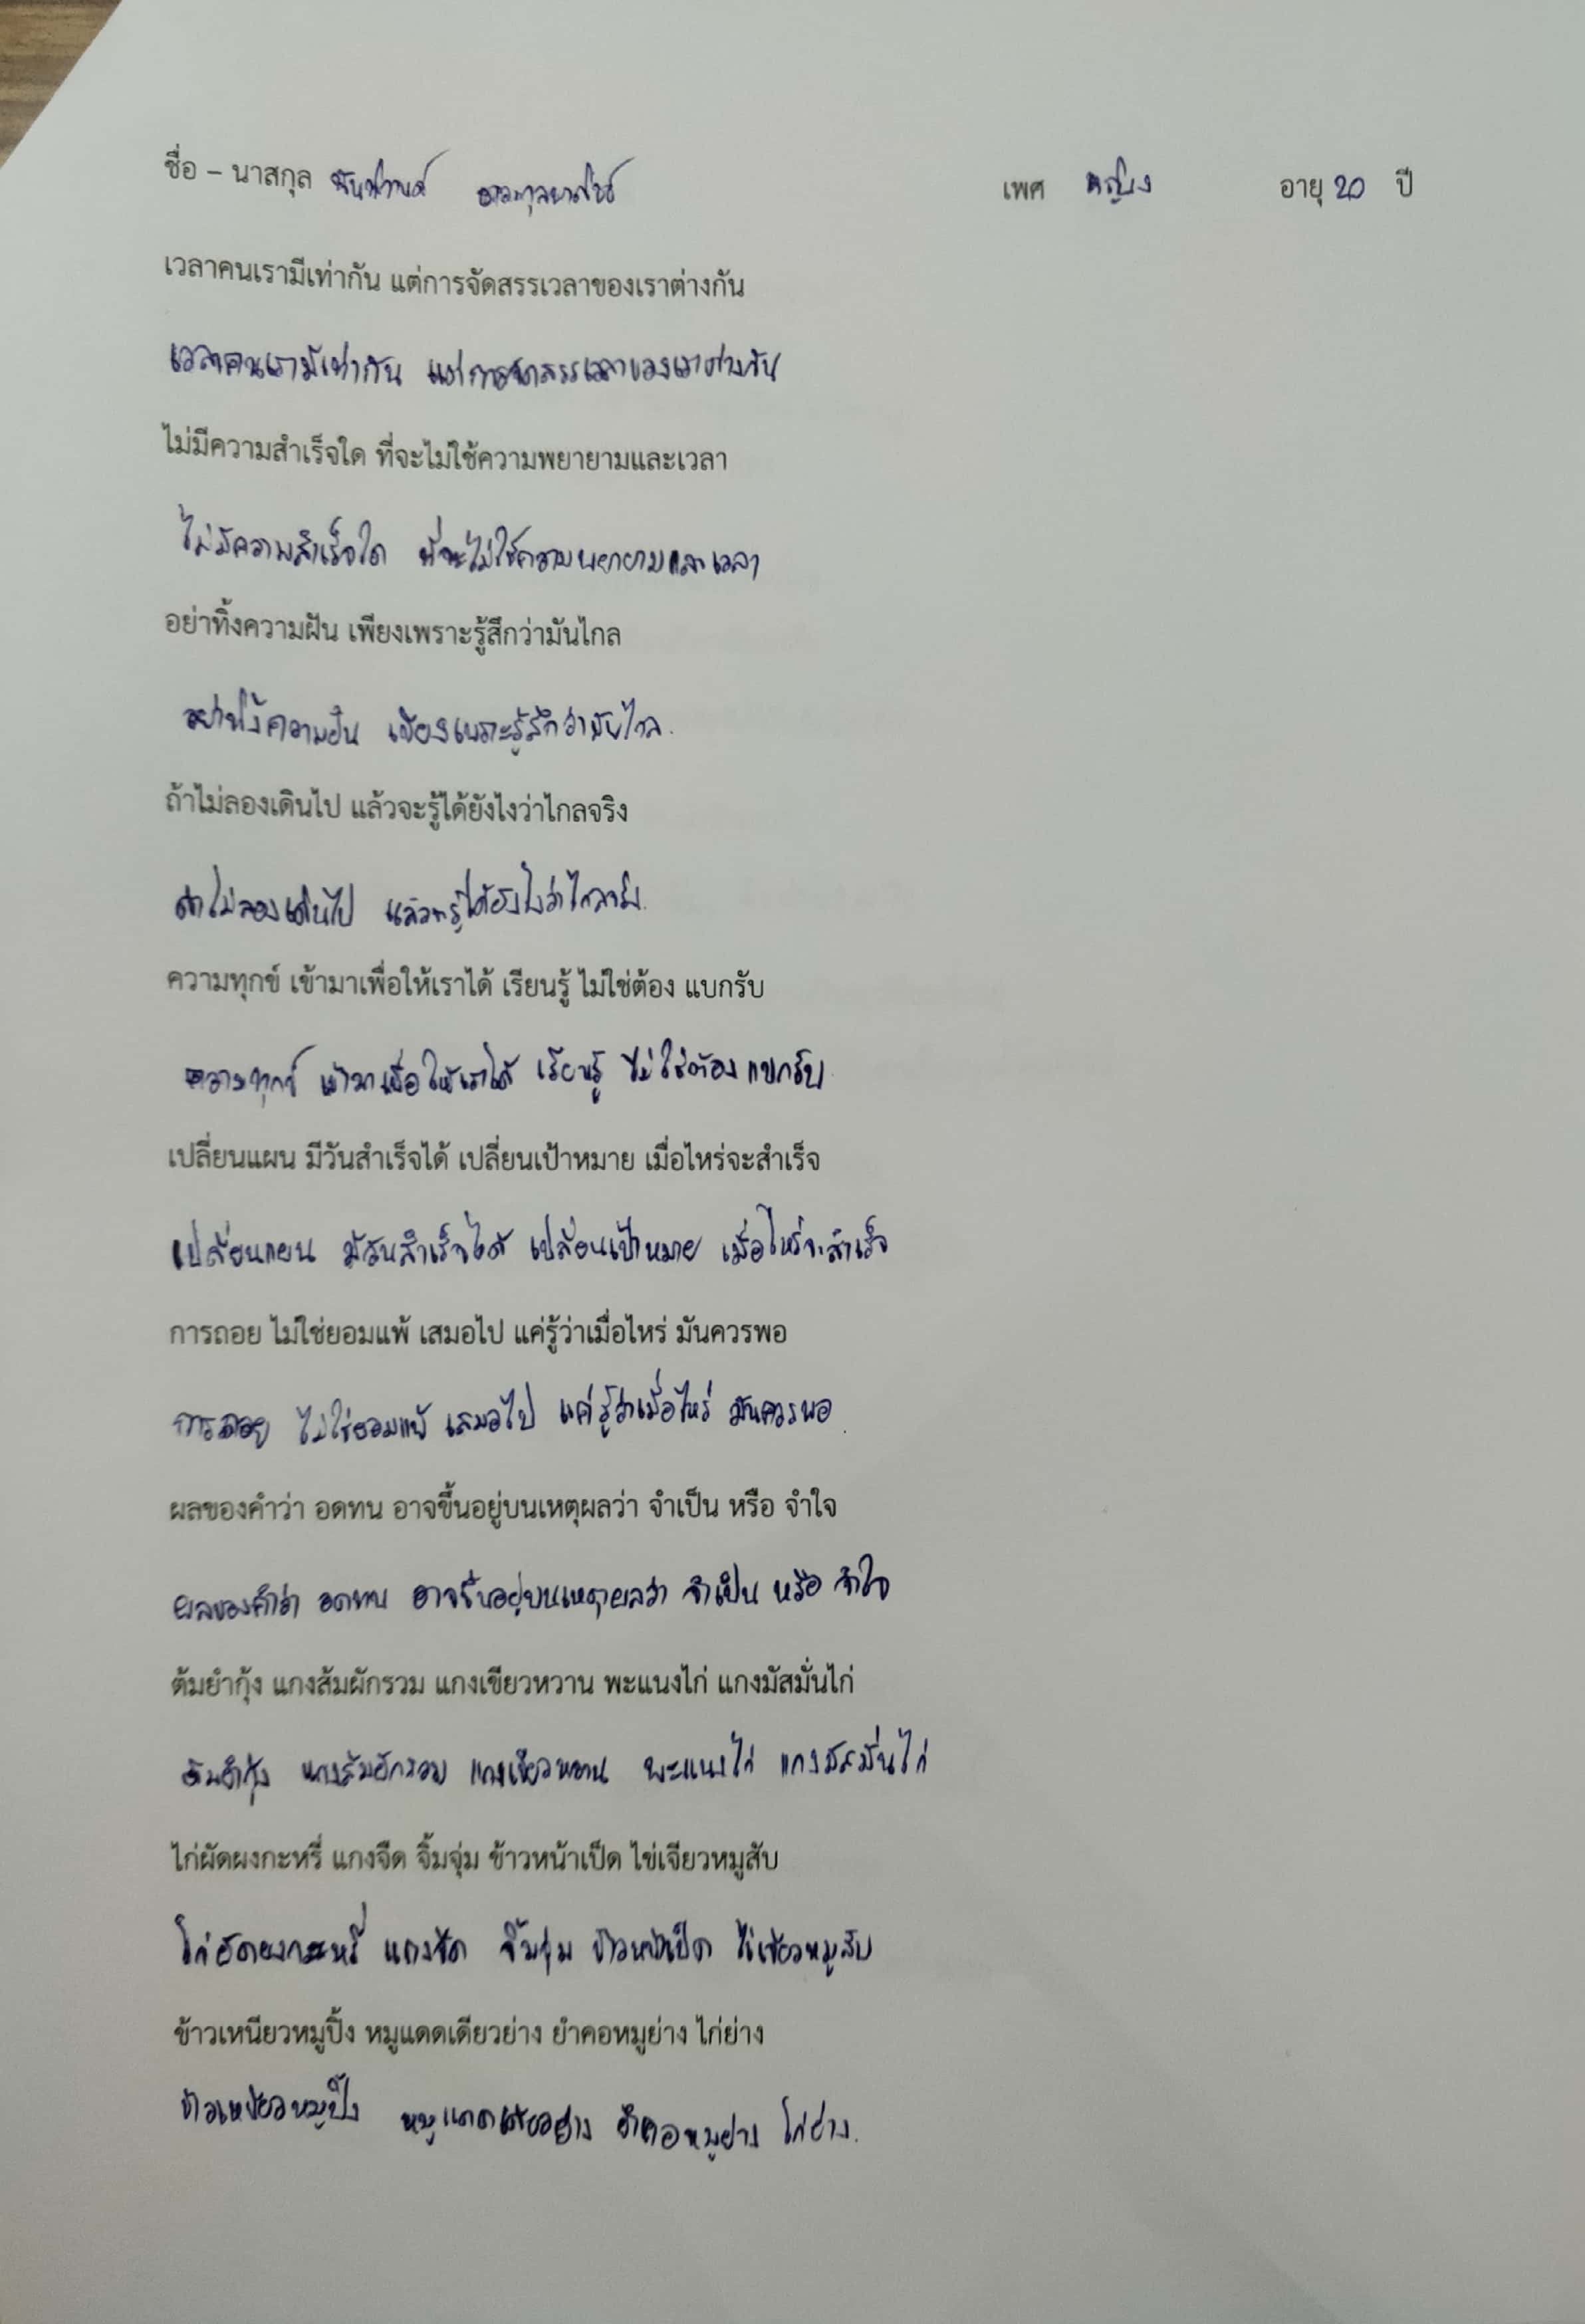 ชื่อ – นาสกุล เพศ หญิง อายุ 20 ปี
เวลาคนเรามีเท่ากัน แต่การจัดสรรเวลาของเราต่างกัน
เวลาคนเรามีเท่ากัน แต่การจัดสรรเวลาของเราต่างกัน
ไม่มีความสำเร็จใด ที่จะไม่ใช้ความพยายามและเวลา
ไม่มีความสำเร็จใด ที่จะไม่ใช้ความพยายามและเวลา
อย่าทิ้งความฝัน เพียงเพราะรู้สึกว่ามันไกล
อย่าทิ้งความฝัน เพียงเพราะรู้สึกว่ามันไกล.
ถ้าไม่ลองเดินไป แล้วจะรู้ได้ยังไงว่าไกลจริง
ถ้าไม่ลองเดินไป แล้วจะรู้ได้ยังไงว่าไกลจริง.
ความทุกข์ เข้ามาเพื่อให้เราได้ เรียนรู้ ไม่ใช่ต้อง แบกรับ
ความทุกข์ เข้ามาเพื่อให้เราได้ เรียนรู้ ไม่ใช่ต้อง แบกรับ
เปลี่ยนแผน มีวันสำเร็จได้ เปลี่ยนเป้าหมาย เมื่อไหร่จะสำเร็จ
เปลี่ยนแผน มีวันสำเร็จได้ เปลี่ยนเป้าหมาย เมื่อไหร่จะสำเร็จ
การถอย ไม่ใช่ยอมแพ้ เสมอไป แค่รู้ว่าเมื่อไหร่ มันควรพอ
การถอย ไม่ใช่ยอมแพ้ เสมอไป แค่รู้ว่าเมื่อไหร่ มันควรพอ.
ผลของคำว่า อดทน อาจขึ้นอยู่บนเหตุผลว่า จำเป็น หรือ จำใจ
ผลของคำว่า อดทน อาจขึ้นอยู่บนเหตุผลว่า จำเป็น หรือ จำใจ
ต้มยำกุ้ง แกงส้มผักรวม แกงเขียวหวาน พะแนงไก่ แกงมัสมั่นไก่
ต้มยำกุ้ง แกงส้มผักรวม แกงเขียวหวาน พะแนงไก่ แกงมัสมั่นไก่
ไก่ผัดผงกะหรี่ แกงจืด จิ้มจุ่ม ข้าวหน้าเป็ด ไข่เจียวหมูสับ
ไก่ผัดผงกะหรี่ แกงจืด จิ้มจุ่ม ข้าวหน้าเป็ด ไข่เจียวหมูสับ
ข้าวเหนียวหมูปิ้ง หมูแดดเดียวย่าง ยำคอหมูย่าง ไก่ย่าง
ข้าวเหนียวหมูปิ้ง หมูแดดเดียวย่าง ยำคอหมูย่าง ไก่ย่าง.